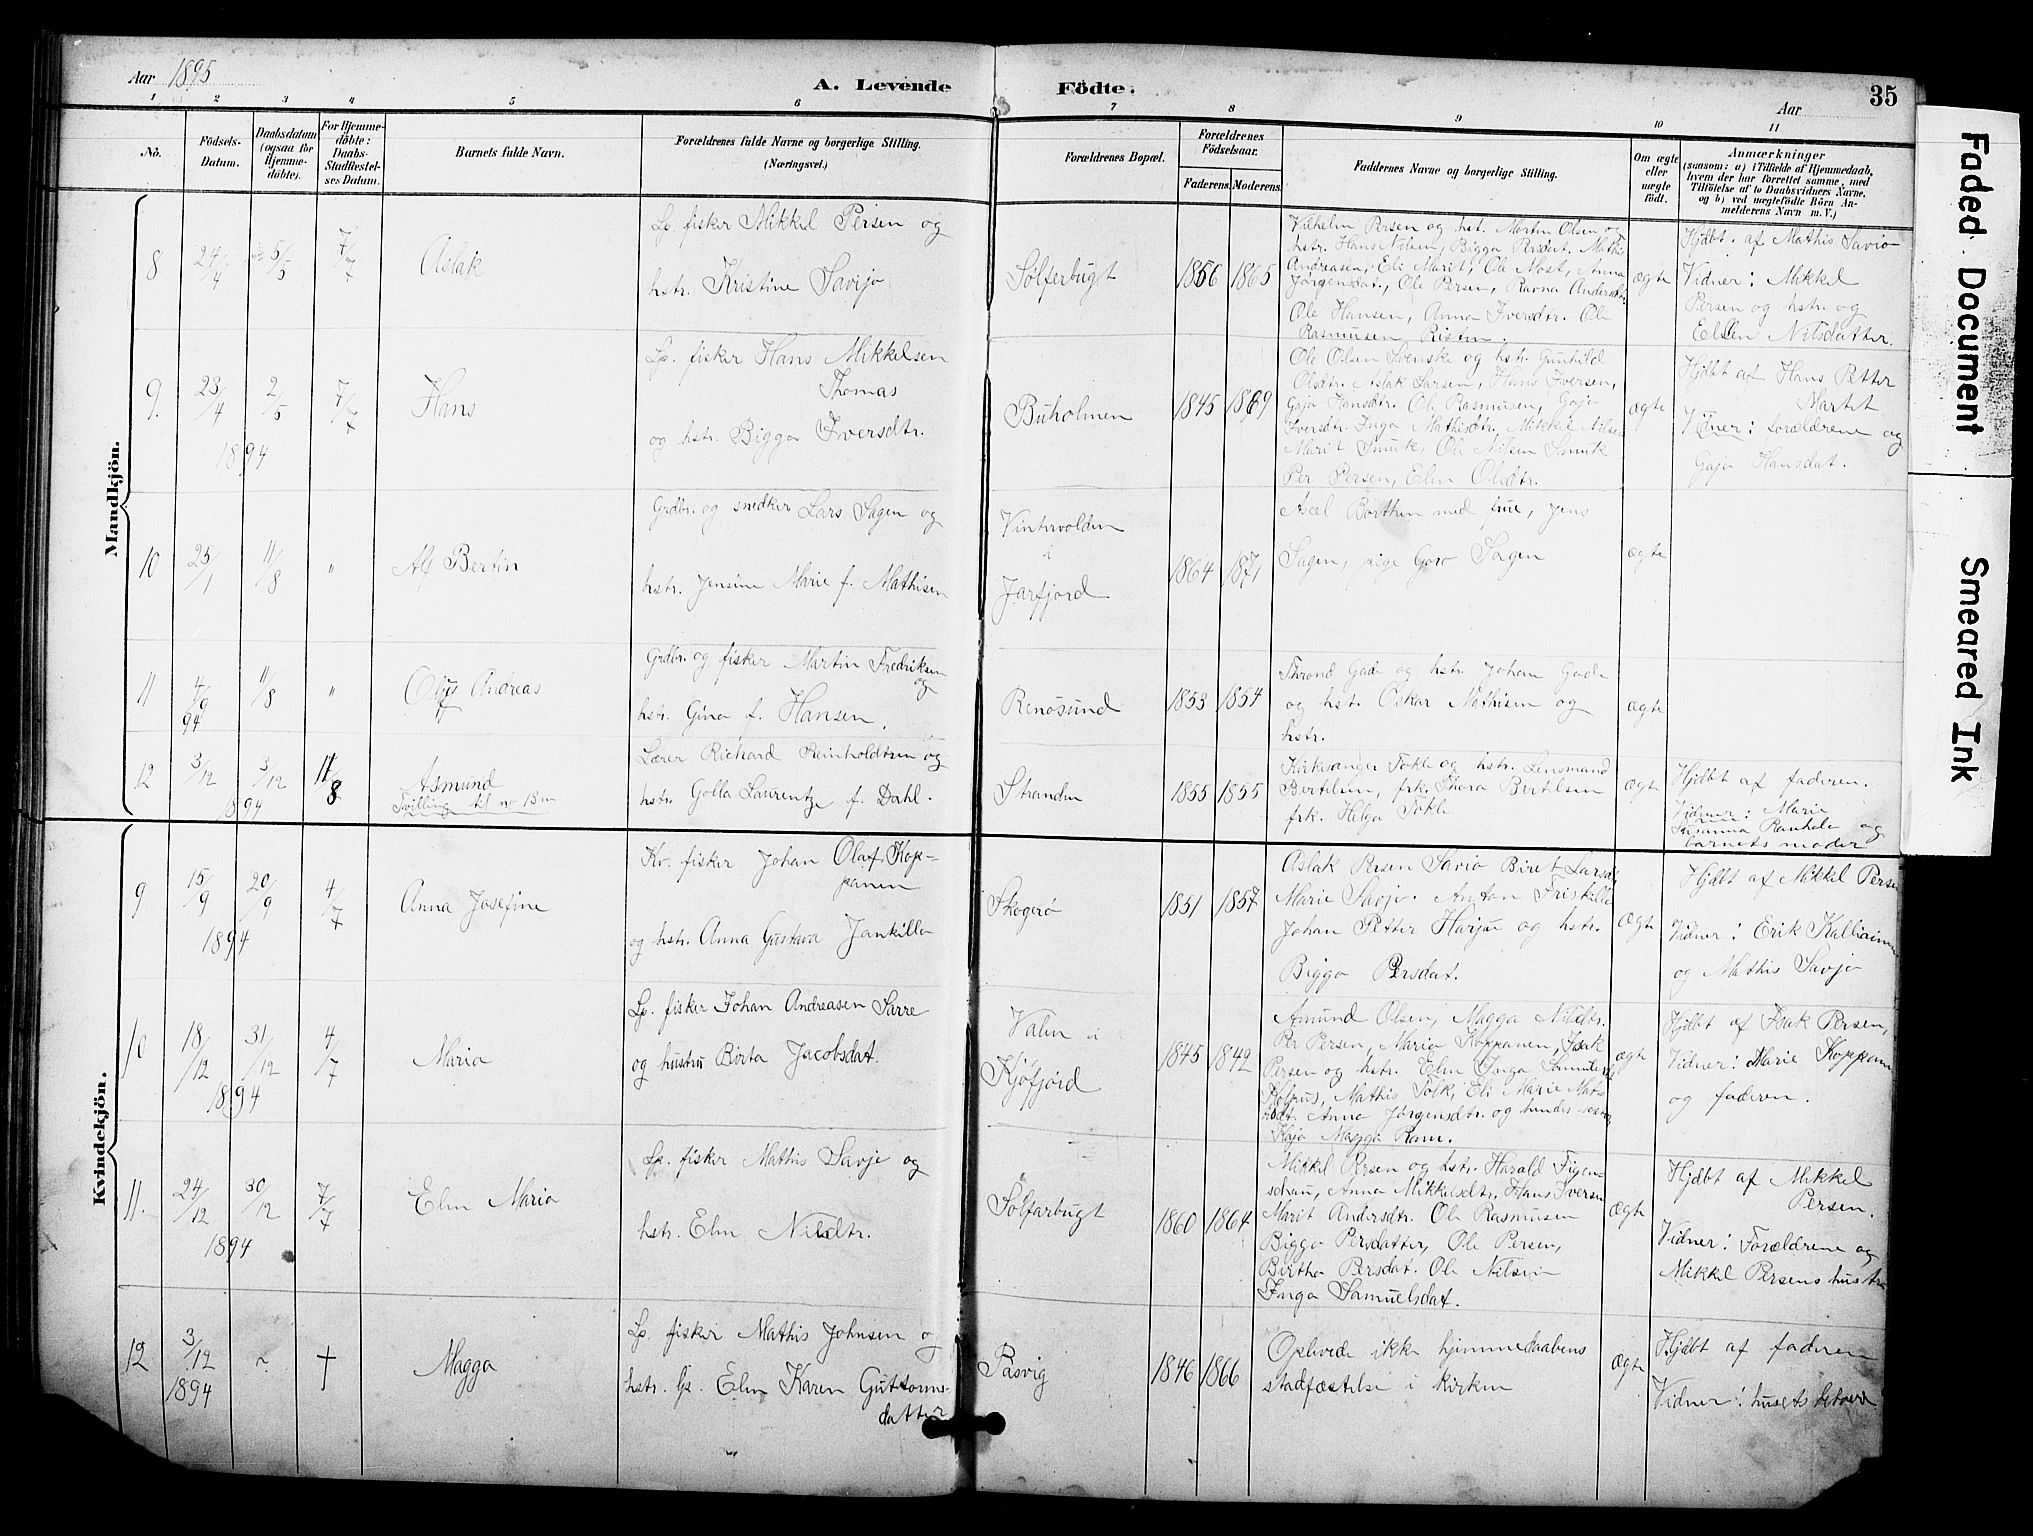 Aar 1895
A. Levende Födte.
Aar
35
1 2 3 4 5 6 7 8 9 10 11
No.
Födsels-Datum.
Daabsdatum (ogsaa for Hjemme-döbte).
For Hjemme-döbte: Daabs-Stadfæstel-ses Datum.
Barnets fulde Navn.
Forældrenes fulde Navne og borgerlige Stilling. (Næringsvei.)
Forældrenes Bopæl.
Forældrenes Födselsaar.
Faderens. Moderens.
Faddernes Navne og borgerlige Stilling.
Om ægte eller uægte födt.
Anmærkninger
(saasom: a) i Tilfælde af Hjemmedaab, hvem der har forrettet samme, med Tilföielse af to Daabsvidners Navne, og b) ved uægtefödte Börn An-melderens Navn m. V.)
Mandkjön.
8 24/4 5/5 7/7
Aslak
Lp. fisker Mikkel Persen og
hstr. Kristine Savjo
Sølferbugt
1856 1865
Vilhelm Persen og hst. Morten Olsen og
hstr. Hans Nilsen, Bigga Persdat. Mathis
Andreasen, Eli Marit, Ole Most, Anna
Jørgensdat., Ole Persen, Ravna Andersdtr.
Ole Hansen, Anna Iversdtr. Ole
Rasmusen Risten.
ægte
Hjdbt. af Mathis Savio
Vidner: Mikkel
Persen og hstr. og
Ellen Nilsdatter.
9. 23/4 2/5 7/7
1894
Hans
Lp. fisker Hans Mikkelsen
Thomas
og hstr. Bigga Iversdtr.
Buholmen
1845 1869
Ole Olsen Svenske og hstr. Gunhild
Olsdtr. Aslak Larsen, Hans Iversen,
Gaja Hansdtr. Ole Rasmusen, Gaja
Iversdtr. Inga Mathisdtr. Mikkel Nilsen
Marit Smuk, Ole Nilsen Smuk
Per Persen, Elen Olsdtr.
ægte
Hjdbt af Hans Petter
Martet
Vidner: forældrene og
Gaja Hansdat.
10 25/1 11/8 "
Alf Bertin
Grdbr. og snedker Lars Sagen og
hstr. Jensine Marie f. Mathisen
Vintervolden
i
Jarfjord
1864 1871
Axel Borthen med frue, Jens
Sagen, pige Goro Sagen
ægte
11 4/9 94 11/8 "
Oluf Andreas
Grdbr. og fisker Martin Fredriksen
og
hstr. Gina f. Hansen.
Renøsund
1853 1854
Thrond Gade og hstr. Johan Gade
og hst. Oskar Mathisen og
hstr.
ægte
12 3/12 3/12 11/8
1894
Asmund
Tvilling til no 13 m
Lærer Richard Reinholdtsen og
hstr. Golla Laurentze f. Dahl.
Stranden
1855 1855
Kirkesanger Tokle og hstr. Lensmand
Bertelsen, frk. Thora Bertelsen
frk. Helga Tokle
ægte
Hjdbt af faderen.
Vidner: Marie
Susanna Ranhale og
barnets moder
Kvindekjön.
9 15/9 20/9 4/7
1894
Anna Josefine
Kv. fisker Johan Olaf Kop-
panen
og hstr. Anna Gustava Jankilla
Skogerø
1851 1857
Aslak Persen Savio Biret Larsdtr
Marie Savjo. Anton Friskilla
Johan Petter Harju og hstr.
Bigga Persdat.
ægte
Hjdbt af Mikkel Persen
Vidner: Erik Kalliainen
og Mathis Savjo
10 18/12 31/12 4/7
1894
Maria
Lp. fisker Johan Andreasen Sarre
og hustru Birta Jacobsdat.
Valen i
Kjøfjord
1845 1842
Amund Olsen, Magga Nilsdtr.
Per Persen, Maria Koppanen, Isak
Persen og hstr. Elen Inga Samuelsdtr
Kolpus, Mathis Tolk, Eli Marie Mat-
isdt. Anna Jørgensdtr. og hendes søster
Kaja Magga Ram.
ægte
Hjdbt af Isak Persen,
Vidner: Marie Koppanen
og faderen.
11. 24/12 30/12 7/7
1894
Elen Maria
Lp. fisker Mathis Savjo og
hstr. Elen Nilsdtr.
Solfarbugt
1860 1864
Mikkel Persen og hstr. Harald Figen-
schau, Anna Mikkelsdtr. Hans Iversen
Marit Andersdtr. Ole Rasmusen
Bigga Persdatter, Ole Persen,
Birtha Persdat. Ole Nilsen
Inga Samuelsdat.
ægte
Hjdbt af Mikkel
Persen.
Vidner: Forældrene og
Mikkel Persens hustru
12 3/12 ~ †
1894
Magga
Lp. fisker Mathis Johnsen og
hstr. Lp. Elen Karen Guttorms-
datter
Pasvig
1846 1866
Oplevede ikke hjemmedaabens
stadfæstelse i kirken
ægte
Hjdbt af faderen
Vidner: husets beboere
Faded Document
Smeared Ink